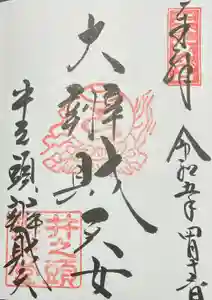 奉拝
令和五年四月
大辨財天女
井之頭辨財天
井之頭